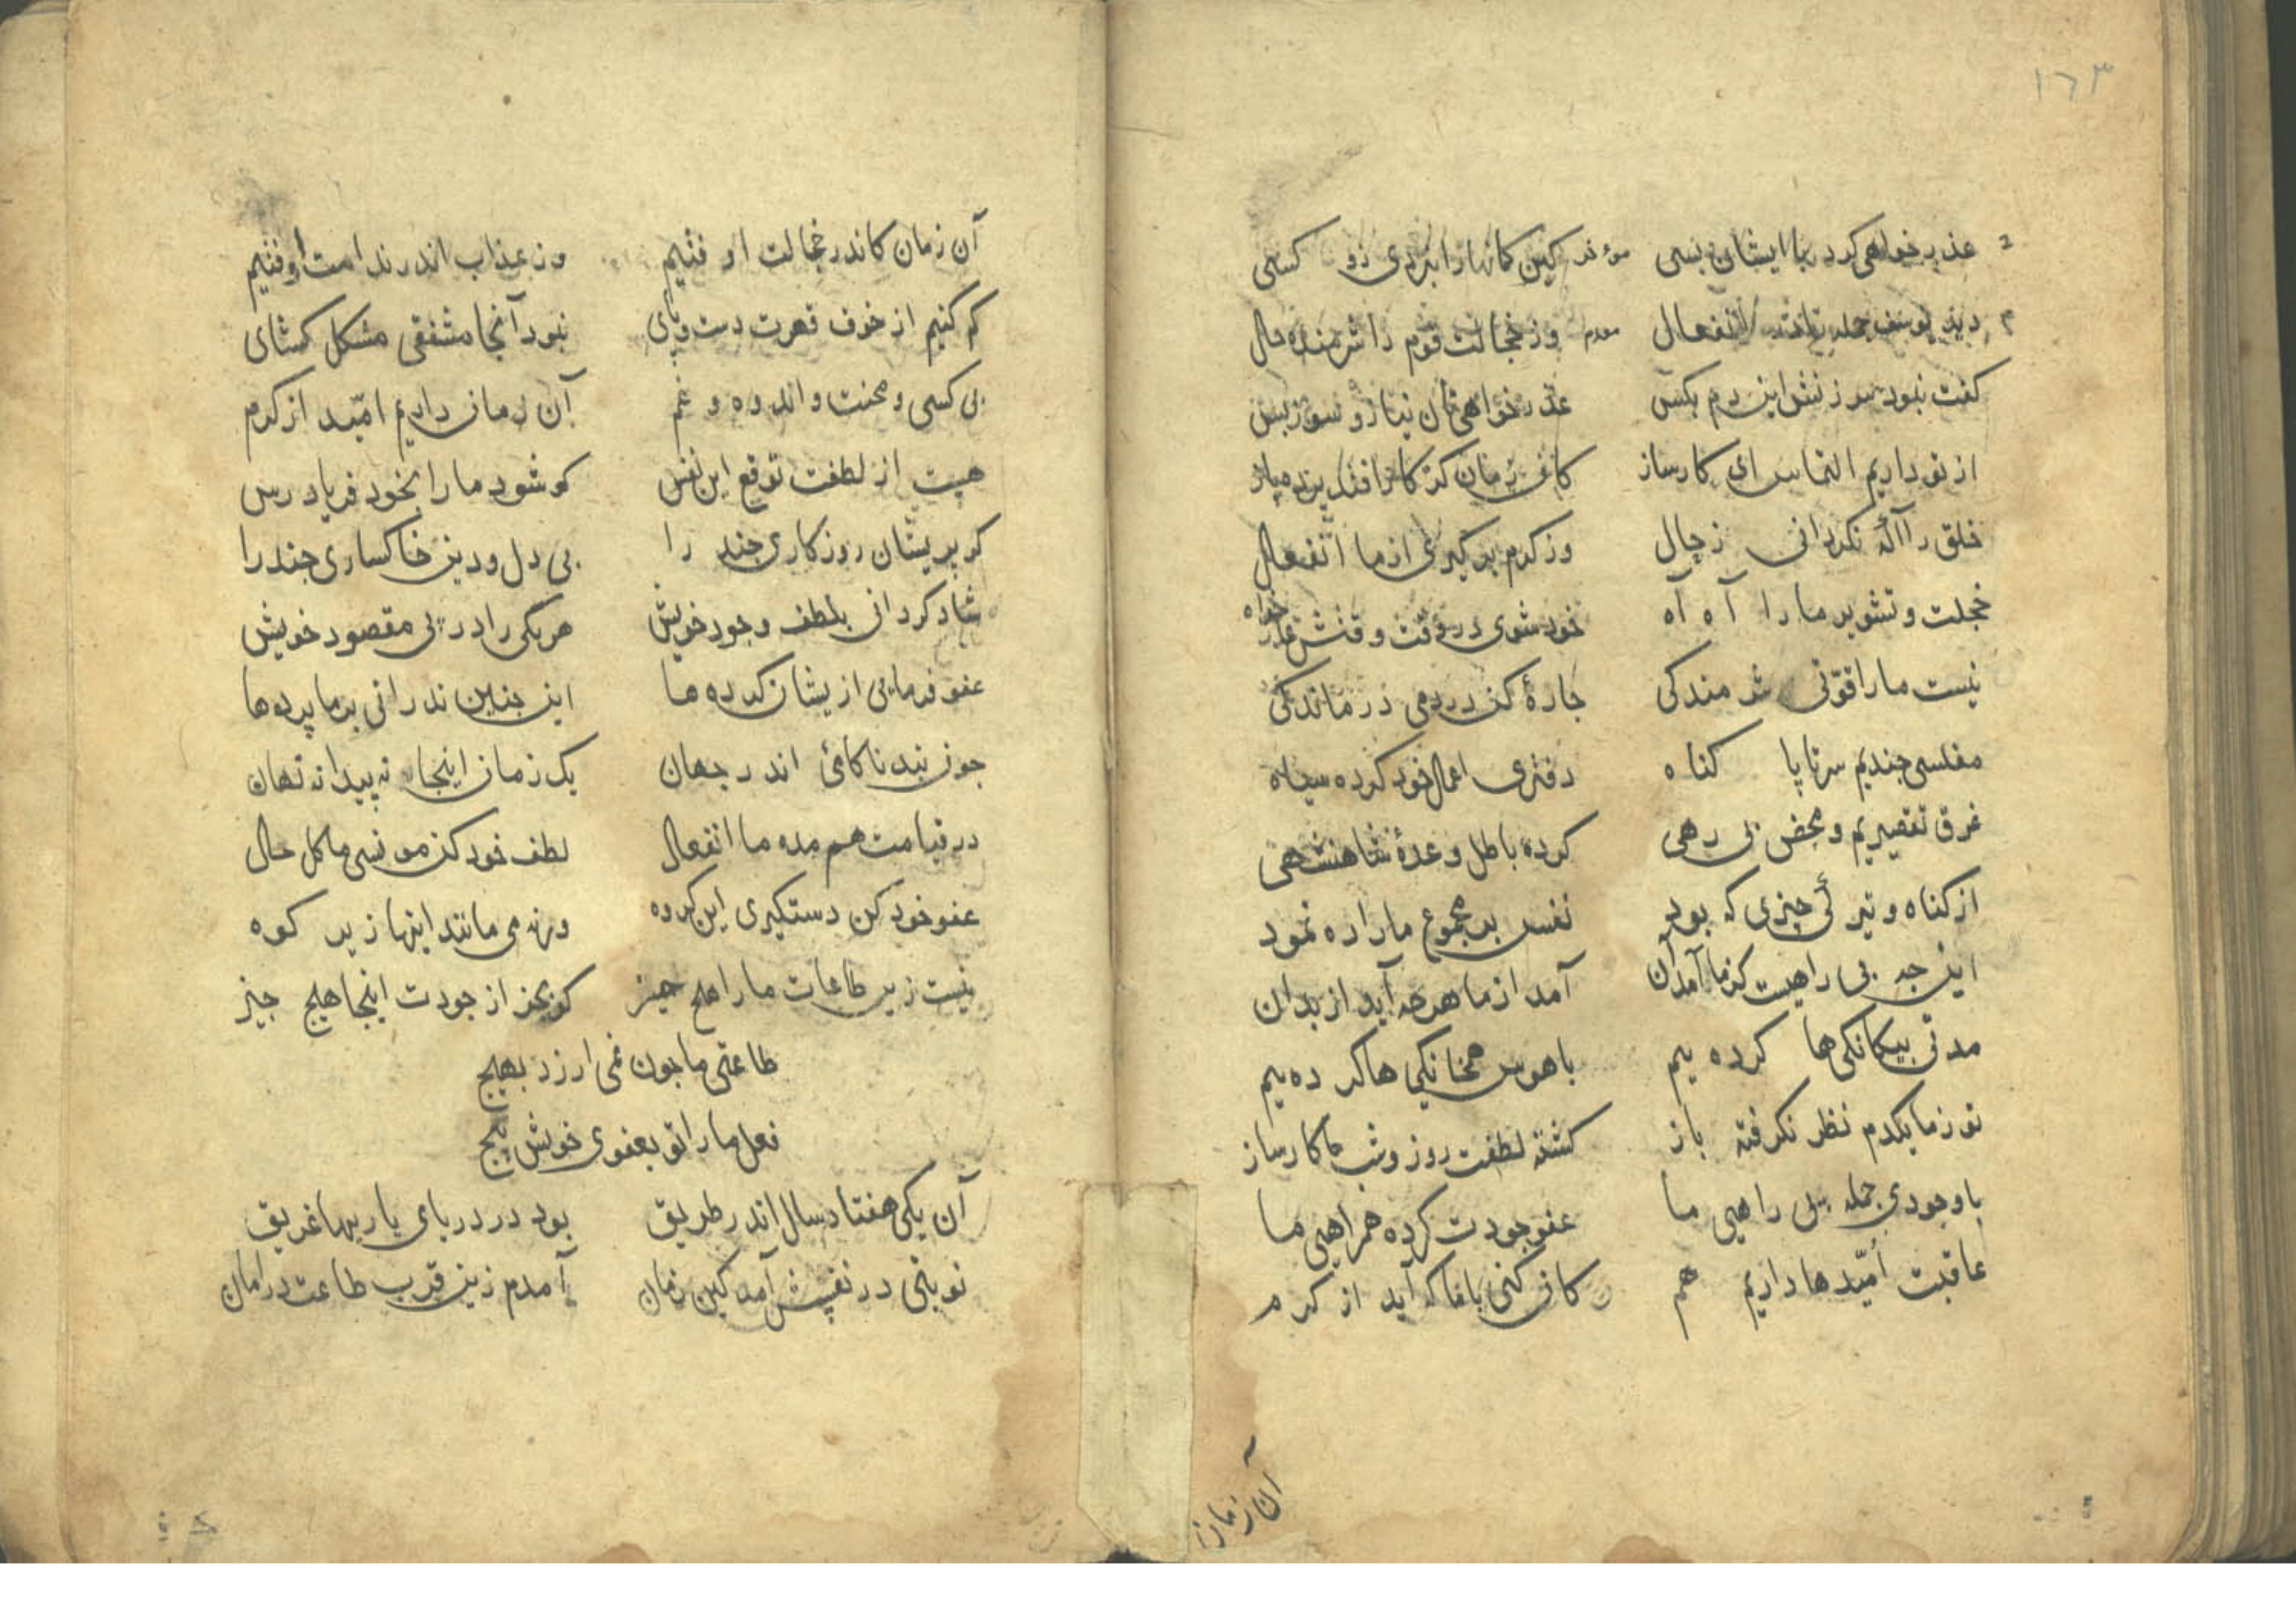 ١٦٣
عذر خواهی کرد با ایشان بسی کین کانها را بردی زو کسی
دید یوسف جمله انفعال وز خجالت قوم را شرمنده حال
کفت نبود سرزنش این دم بکس عذر خواهی تان نیاز و سوز بس
از تو داریم التماس ای کارساز کان زمان کز کار افتد پرده باز
خلق را آکه نکردانی ز حال وز کرم بر کیری از ما انفعال
خجلت و تشویر ما را آه آه خود شوی در وقت وقتش عذر خواه
نیست ما را قوتی شرمندکی چارهٔ کن در دمی درماندکی
مفلسی جندیم سرتاپا کناه دفتری اعمال خود کرده سیاه
غرق تقصیریم و محض بی رهی کرده باطل وعدهٔ شاهنشهی
از کناه و تیرکی چیزی که بود نفس بد مجموع ما را ره نمود
این جه بی راهیست کز ما آمد آن آمد از ما هر چه آید از بدان
مدتی بیکانکی ها کرده ییم با هوس همخانکی ها کرده ییم
تو ز ما یکدم نظر نکرفته باز کشته لطفت روز و شب ما کارساز
با وجودی جمله بی راهی ما عفو جودت کرده همراهی ما
عاقبت امّیدها داریم هم کان کنی با ما که آید از کرم
آن زمان
آن زمان کاندر خجالت اوفتیم وز عذاب اندر ندامت اوفتیم
کم کنیم از خوف قهرت دست و پای نبود آنجا مشفقی مشکل کشای
بی کسی و محنت و اندوه و غم آن زمان داریم امّید از کرم
هست از لطفت توقع این نفس کو شود ما را بخود فریاد رس
کر پریشان روزکاری جند را بی دل و دین خاکساری جند را
شاد کردانی بلطف وجود خویش هریکی را در پی مقصود خویش
عفو فرمایی از یشان کرده ها این جنین ندرانی بر ما پرده ها
جون بند ناکامئ اندر جهان یک زمان اینجا نه پیدا نه نهان
در قیامت هم مده ما انفعال لطف خود کن مونسی ما کل حال
عفو خود کن دستکیری این کروه ورنه می مانند اینها زیر کوه
نیست زیر طاعات ما را هیچ جیز کو بجز از جودت اینجا هیج جیز
طاعتی ما جون نمی ارزد بهیج
فعل ما را تو بعفوی خویش پیج
آن یکی هفتاد سال اندر طریق بود در دریای یاربها غریق
نوبتی در نفسش آمد کین زمان آمدم زین قرب طاعت در امان